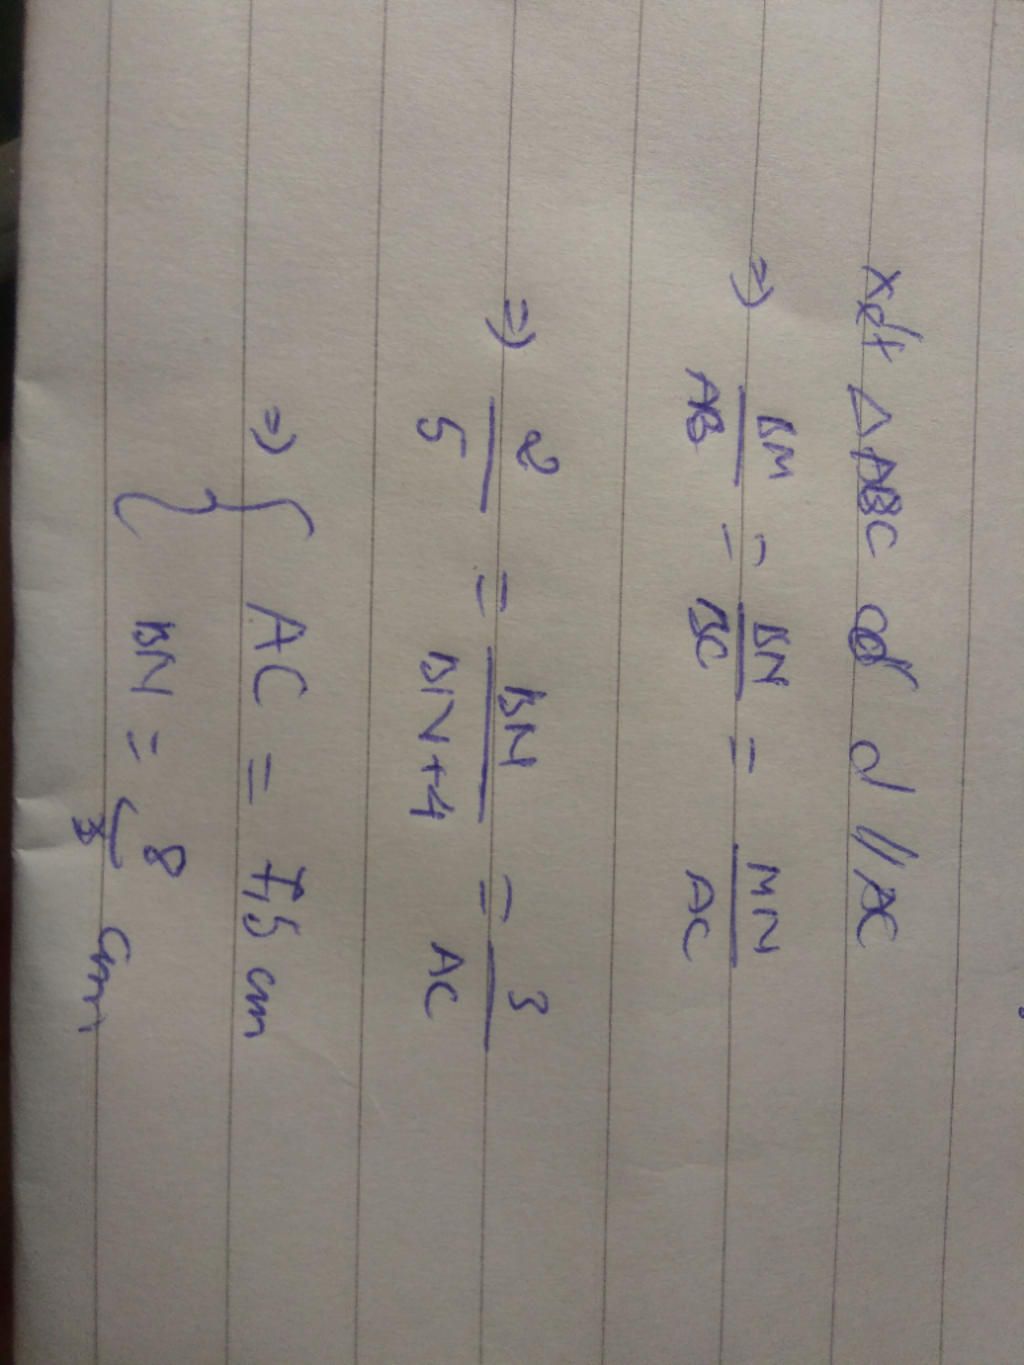 xét △ABC có d // AC
=> BM/AB = BN/BC = MN/AC
=> 2/5 = BN/BN+4 = 3/AC
=> { AC = 7,5 cm
BN = 8/3 cm